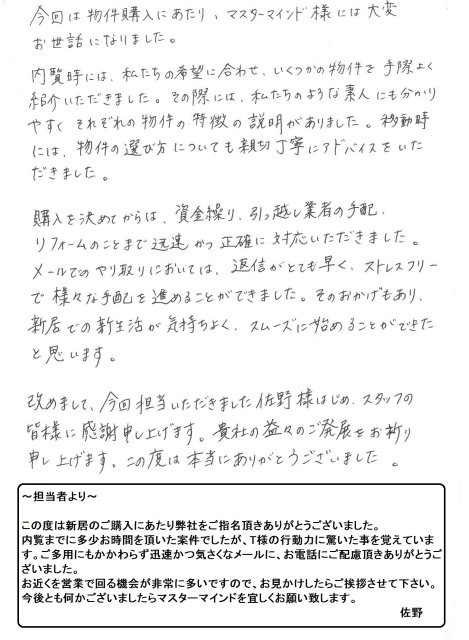 今回は物件購入にあたり、マスターマインド様には大変
お世話になりました。
内覧時には、私たちの希望に合わせ、いくつかの物件を手際よく
紹介いただきました。その際には、私たちのような素人にも分かり
やすくそれぞれの物件の特徴の説明がありました。移動時
には、物件の選び方についても親切丁寧にアドバイスをいた
だきました。
購入を決めてからは、資金繰り、引っ越し業者の手配、
リフォームのことまで迅速かつ正確に対応いただきました。
メールでのやり取りにおいては、返信がとても早く、ストレスフリー
で様々な手配を進めることができました。そのおかげもあり、
新居での新生活が気持ちよく、スムーズに始めることができた
と思います。
改めまして、今回担当いただきました佐野様はじめ、スタッフの
皆様に感謝申し上げます。貴社の益々のご発展をお祈り
申し上げます。この度は本当にありがとうございました。
～担当者より～
この度は新居のご購入にあたり弊社をご指名頂きありがとうございました。
内覧までに多少お時間を頂いた案件でしたが、T様の行動力に驚いた事を覚えていま
す。ご多用にもかかわらず迅速かつ気さくなメールに、お電話にご配慮頂きありがとうご
ざいました。
お近くを営業で回る機会が非常に多いですので、お見かけしたらご挨拶させて下さい。
今後とも何かございましたらマスターマインドを宜しくお願い致します。
佐野